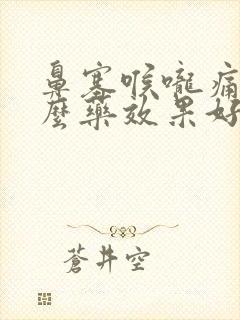 鼻塞喉嚨痛
麼藥效果好
蒼井空